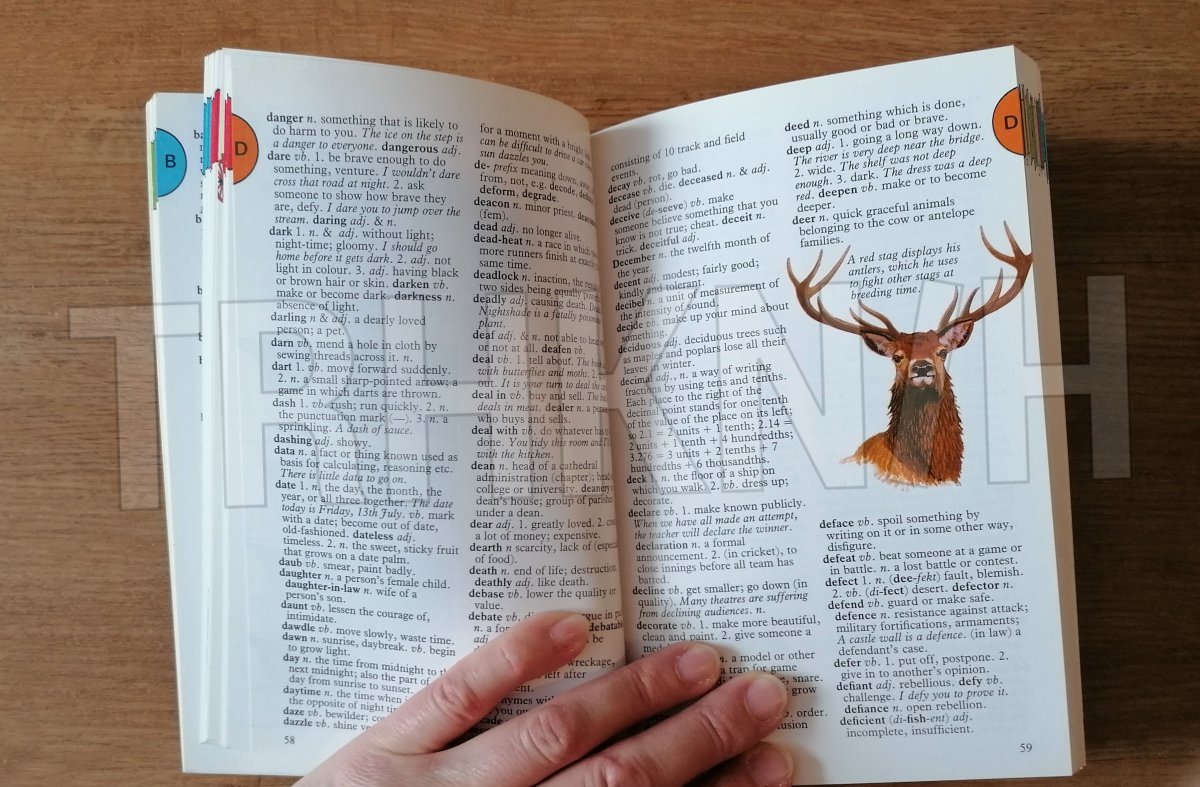 B
D
danger n. something that is likely to
do harm to you. The ice on the step is
a danger to everyone. dangerous adj.
dare vb. 1. be brave enough to do
something, venture. I wouldn't dare
cross that road at night. 2. ask
someone to show how brave they
are, defy. I dare you to jump over the
stream. daring adj. & n.
dark 1. n. & adj. without light;
night-time; gloomy. I should go
home before it gets dark. 2. adj. not
light in colour. 3. adj. having black
or brown hair or skin. darken vb.
make or become dark. darkness n.
absence of light.
darling n & adj. a dearly loved
person; a pet.
darn vb. mend a hole in cloth by
sewing threads across it. n.
dart 1. vb. move forward suddenly.
2. n. a small sharp-pointed arrow; a
game in which darts are thrown.
dash 1. vb. rush; run quickly. 2. n.
the punctuation mark (—). 3. n. a
sprinkling. A dash of sauce.
dashing adj. showy.
data n. a fact or thing known used as
basis for calculating, reasoning etc.
There is little data to go on.
date 1. n. the day, the month, the
year, or all three together. The date
today is Friday, 13th July. vb. mark
with a date; become out of date,
old-fashioned. dateless adj.
timeless. 2. n. the sweet, sticky fruit
that grows on a date palm.
daub vb. smear, paint badly.
daughter n. a person's female child.
daughter-in-law n. wife of a
person's son.
daunt vb. lessen the courage of,
intimidate.
dawdle vb. move slowly, waste time.
dawn n. sunrise, daybreak. vb. begin
to grow light.
day n. the time from midnight to
next midnight; also the part of
day from sunrise to sunset.
daytime n. the time when
the opposite of night
daze vb. bewilder;
dazzle vb. shine
58
for a moment with a bright
can be difficult to drive a car
sun dazzles you.
de- prefix meaning down,
from, not, e.g. decode,
deform, degrade.
deacon n. minor priest.
(fem).
dead adj. no longer alive.
dead-heat n. a race in which
more runners finish at exactly
same time.
deadlock n. inaction, the
two sides being equally
deadly adj. causing death.
Nightshade is a fatally
plant.
deaf adj. & n. not able to
or not at all. deafen vb.
deal vb. 1. tell about. The
with butterflies and moths. 2.
out. It is your turn to deal the
deal in vb. buy and sell. The
deals in meat. dealer n. a
who buys and sells.
deal with vb. do whatever
done. You tidy this room and
with the kitchen.
dean n. head of a cathedral
administration (chapter);
college or university.
dean's house; group of
under a dean.
dear adj. 1. greatly loved. 2.
a lot of money; expensive.
dearth n scarcity, lack of
of food).
death n. end of life; destruction.
deathly adj. like death.
debase vb. lower the quality or
value.
debate vb.
n. a
adj.
be
wreckage,
left after
rhymes with
you
consisting of 10 track and field
events.
decay vb. rot, go bad.
decease vb. die. deceased n. & adj.
dead (person).
deceive (de-seeve) vb. make
someone believe something that you
know is not true; cheat. deceit n.
trick. deceitful adj.
December n. the twelfth month of
the year.
decent adj. modest; fairly good;
kindly and tolerant.
decibel n. a unit of measurement of
the intensity of sound.
decide vb. make up your mind about
something.
deciduous adj. deciduous trees such
as maples and poplars lose all their
leaves in winter.
decimal adj., n. a way of writing
fractions by using tens and tenths.
Each place to the right of the
decimal point stands for one tenth
of the value of the place on its left;
so 2.1 = 2 units + 1 tenth; 2.14 =
2 units + 1 tenth + 4 hundredths;
3.276 = 3 units + 2 tenths + 7
hundredths + 6 thousandths.
deck 1. n. the floor of a ship on
which you walk. 2. vb. dress up;
decorate.
declare vb. 1. make known publicly.
When we have all made an attempt,
the teacher will declare the winner.
declaration n. a formal
announcement. 2. (in cricket), to
close innings before all team has
batted.
decline vb. get smaller; go down (in
quality). Many theatres are suffering
from declining audiences. n.
decorate vb. 1. make more beautiful,
clean and paint. 2. give someone a
n. a model or other
a trap for game
snare.
grow
vb. order.
deed n. something which is done,
usually good or bad or brave.
deep adj. 1. going a long way down.
The river is very deep near the bridge.
2. wide. The shelf was not deep
enough. 3. dark. The dress was a deep
red. deepen vb. make or to become
deeper.
deer n. quick graceful animals
belonging to the cow or antelope
families.
A red stag displays his
antlers, which he uses
to fight other stags at
breeding time.
deface vb. spoil something by
writing on it or in some other way,
disfigure.
defeat vb. beat someone at a game or
in battle. n. a lost battle or contest.
defect 1. n. (dee-fekt) fault, blemish.
2. vb. (di-fect) desert. defector n.
defend vb. guard or make safe.
defence n. resistance against attack;
military fortifications, armaments;
A castle wall is a defence. (in law) a
defendant's case.
defer vb. 1. put off, postpone. 2.
give in to another's opinion.
defiant adj. rebellious. defy vb.
challenge. I defy you to prove it.
defiance n. open rebellion.
deficient (di-fish-ent) adj.
incomplete, insufficient.
59
D